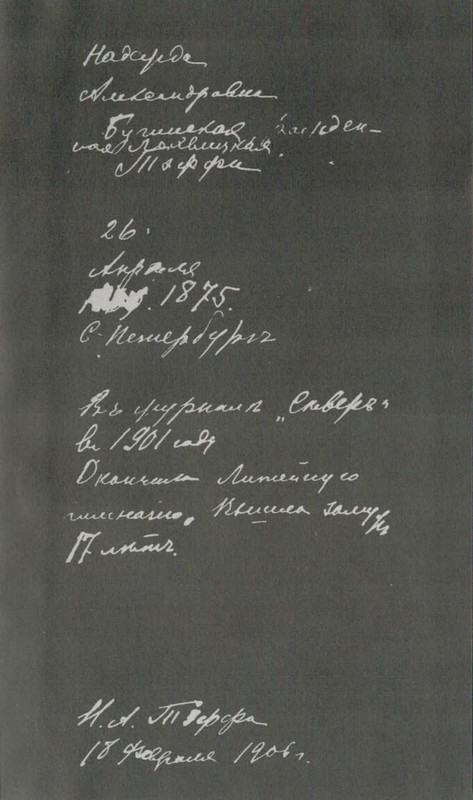 Надежда
Александровна
Бучинская рожден-
ная Лохвицкая.
Тэффи
26.
Апреля
1875.
С. Петербургъ
Въ журналѣ „Сѣверъ“
въ 1901 году
Окончила Литейную
гимназію. Вышла замужъ
17 лѣтъ.
Н. А. Тэффи
18 февраля 1906 г.